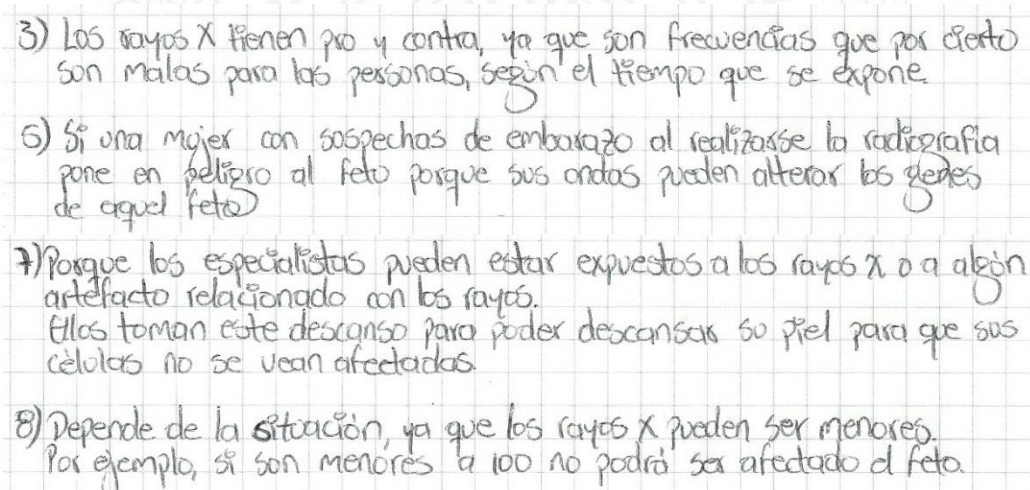 3) Los rayos X tienen pro y contra, ya que son frecuencias que por cierto
son malas para las personas, según el tiempo que se expone.
6) Si una mujer con sospechas de embarazo al realizarse la radiografia
pone en peligro al feto porque sus ondas pueden alterar los genes
de aquel feto
7) Porque los especialistas pueden estar expuestos a los rayos X o a algún
artefacto relacionado con los rayos.
Ellos toman este descanso para poder descansar su piel para que sus
células no se vean afectadas.
8) Depende de la situación, ya que los rayos X pueden ser menores.
Por ejemplo, si son menores a 100 no podrá ser afectado el feto.